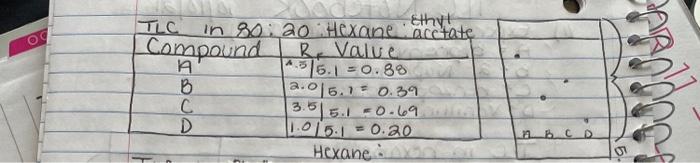 TLC in 80:20 Hexane: Ethyl acetate
Compound Rf Value
A 4.5/5.1 = 0.88
B 2.0/5.1 = 0.39
C 3.5/5.1 = 0.69
D 1.0/5.1 = 0.20
A B C D
Hexane: